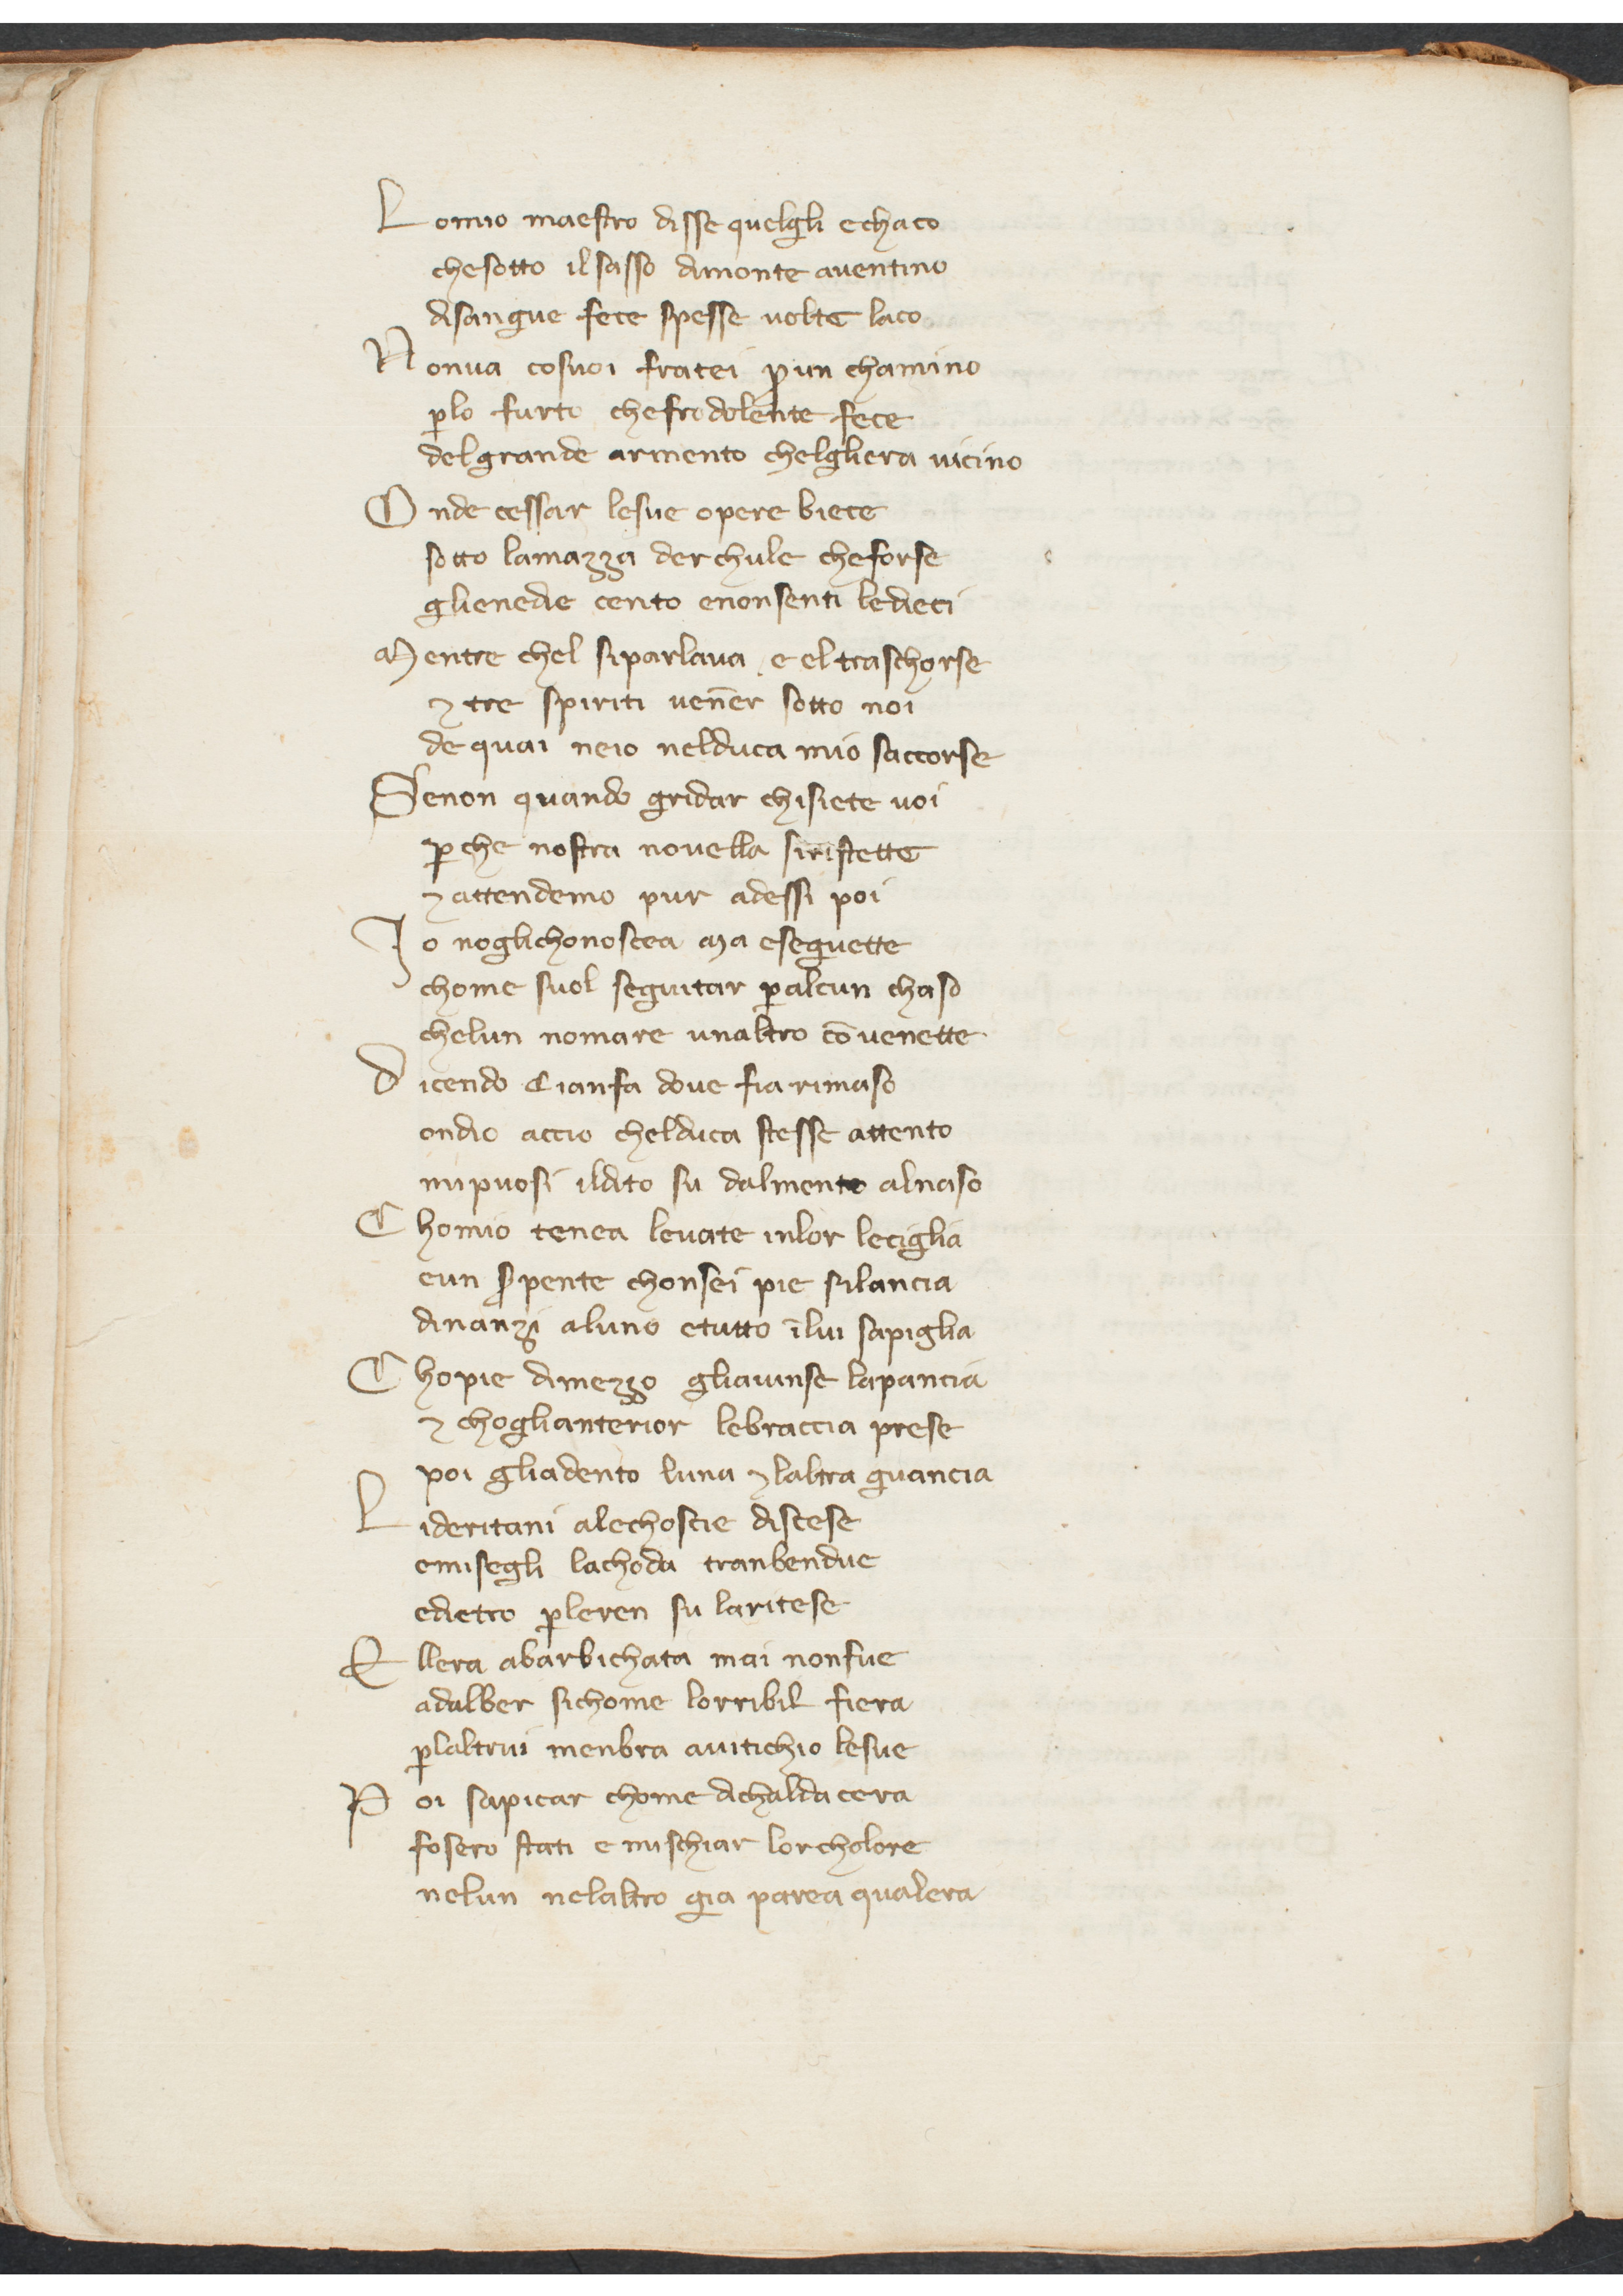 Lomio maestro disse quelgli echaco
chesotto ilsasso dimonte auentino
disangue fece spesse uolte laco
Nonua cosuoi fratei ꝑun chamino
ꝑlo furto chefrodolente fece
delgrande armento chelgliera uicino
Onde cessar lesue opere biece
sotto lamazza derchule cheforse
glienedie cento enonsenti ledieci
Mentre chel siparlaua e el traschorse
⁊ tre spiriti ven̄er sotto noi
de quai neio nelduca mio saccorse
Senon quando gridar chisiete uoi
ꝑche nostra nouella siristette
⁊ attendemo pur adessi poi
Io noglichonoscea ma eseguette
chome suol seguitar ꝑalcun chaso
chelun nomare unaltro cō uenette
Dicendo Cianfa doue fia rimaso
ondio accio chelduca stesse attento
mipuosi ildito su dalmento alnaso
Chomio tenea leuate inlor leciglia
eun s̄pente chonsei pie silancia
dinanzi aluno etutto īlui sapiglia
Chopie dimezzo gliauinse lapancia
⁊ choglianterior lebraccia prese
poi gliadento luna ⁊ laltra guancia
Lideritani alechoscie discese
emisegli lachoda tranbendue
edietro ꝑleren su laritese
Ellera abarbichata mai nonfue
adalber sichome lorribil fiera
ꝑlaltrui menbra auitichio lesue
Poi sapicar chome dichalda cera
fosero stati e mischiar lorcholore
nelun nelaltro gia parea qualera